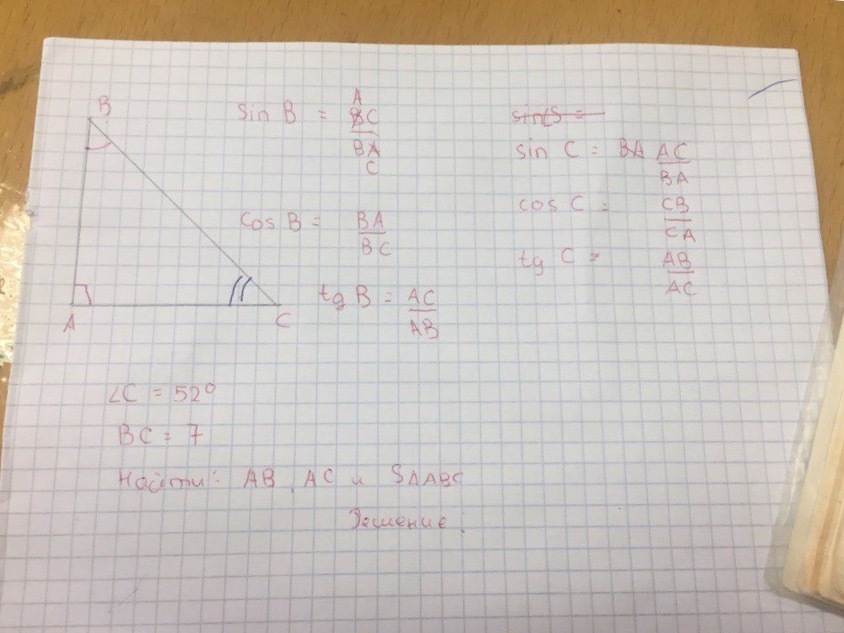 B
A
C
A
sin B = BC
BA
C
cos B = BA
BC
tg B = AC
AB
sin C = BA AC
BA
cos C = CB
CA
tg C = AB
AC
∠C = 52°
BC = 7
Найти: AB, AC и S△ABC
Решение: